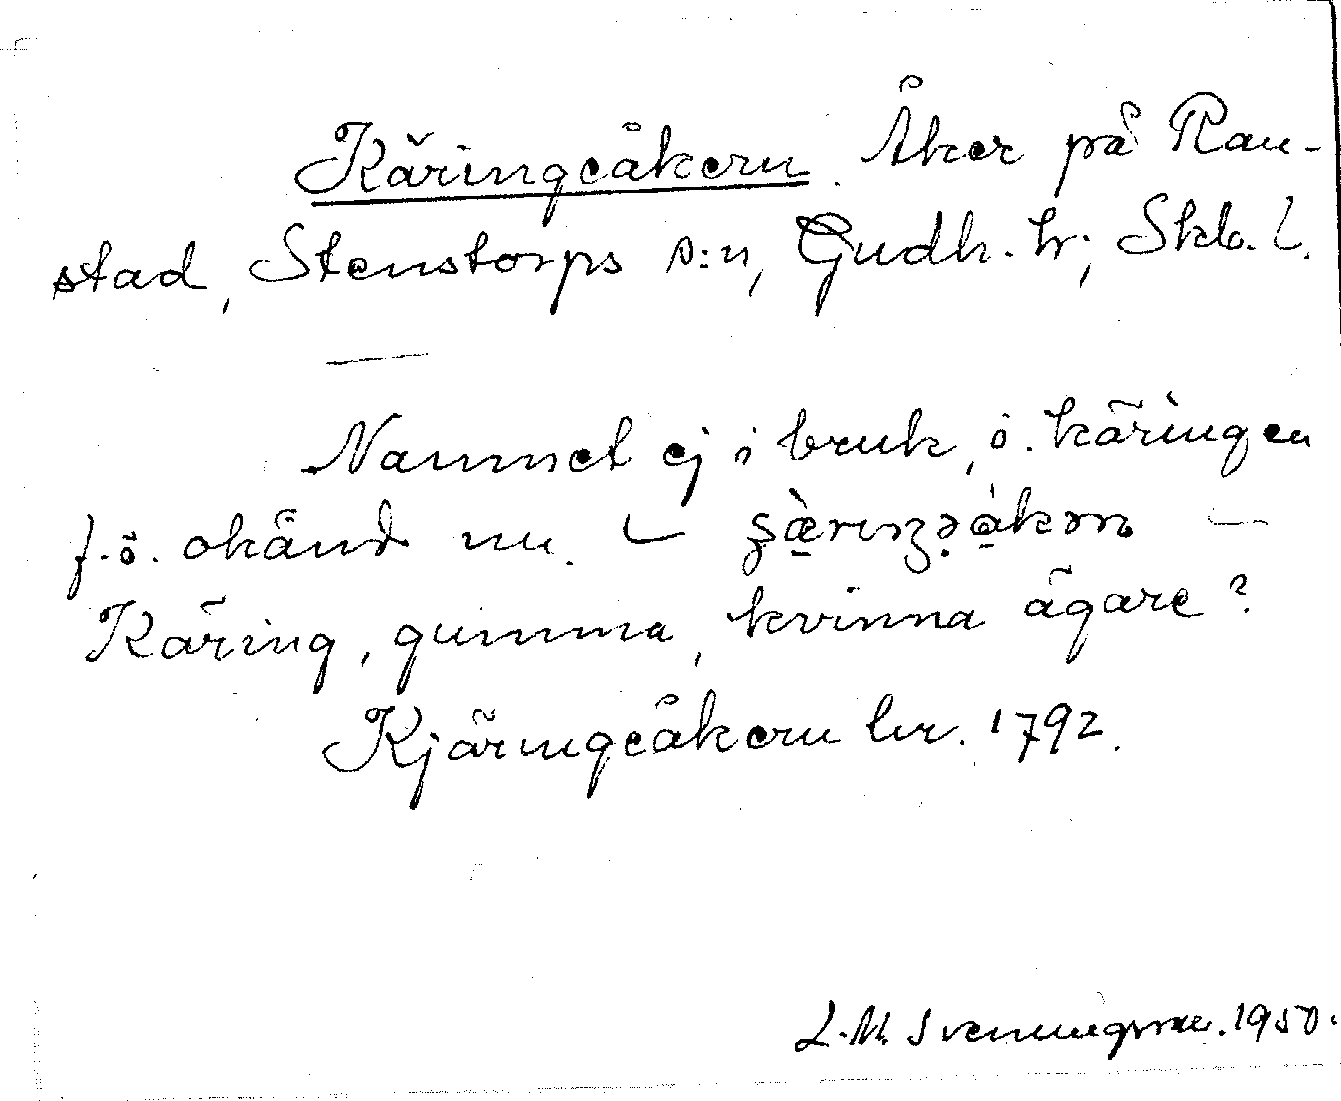 Käringeåkern. Åker på Ran-
stad, Stenstorps s:n, Gudh. hr; Skb. l.
Namnet ej i bruk, o. käringen
f.ö. okänd nu. —
Käring, gumma, kvinna ägare?
Kjäringeåkern lsr. 1792.
L.M. Svenungsson. 1950.